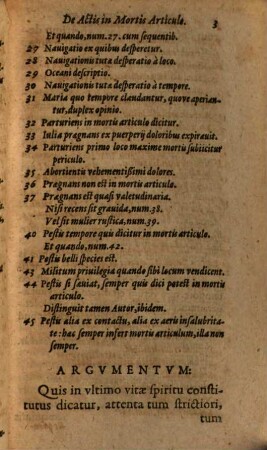 De Actis in Mortis Articulo. 3
Et quando, num. 27. cum sequentib.
27 Nauigatio ex quibus desperetur.
28 Nauigationis tutæ desperatio à loco.
29 Oceani descriptio.
30 Nauigationis tutæ desperatio à tempore.
31 Maria quo tempore claudantur, quove aperian-
tur, duplex opinio.
32 Parturiens in mortis articulo dicitur.
33 Iulia prægnans ex puerperij doloribus expirauit.
34 Parturiens primo loco maxime mortis subijcitur
periculo.
35 Abortientis vehementissimi dolores.
36 Prægnans non est in mortis articulo.
37 Prægnans est quasi valetudinaria.
Nisi recens sit grauida, num. 38.
Vel sit mulier rustica, num. 39.
40 Pestis tempore quis dicitur in mortis articulo.
Et quando, num. 42.
41 Pestis belli species est.
43 Militum priuilegia quando sibi locum vendicent.
44 Pestis si sæuiat, semper quis dici potest in mortis
articulo.
Distinguit tamen Autor, ibidem.
45 Pestis alia ex contactu, alia ex aeris insalubrita-
te: hæc semper infert mortis articulum, illa non
semper.
ARGVMENTVM:
Quis in vltimo vitæ spiritu consti-
tutus dicatur, attenta tum strictiori,
tum